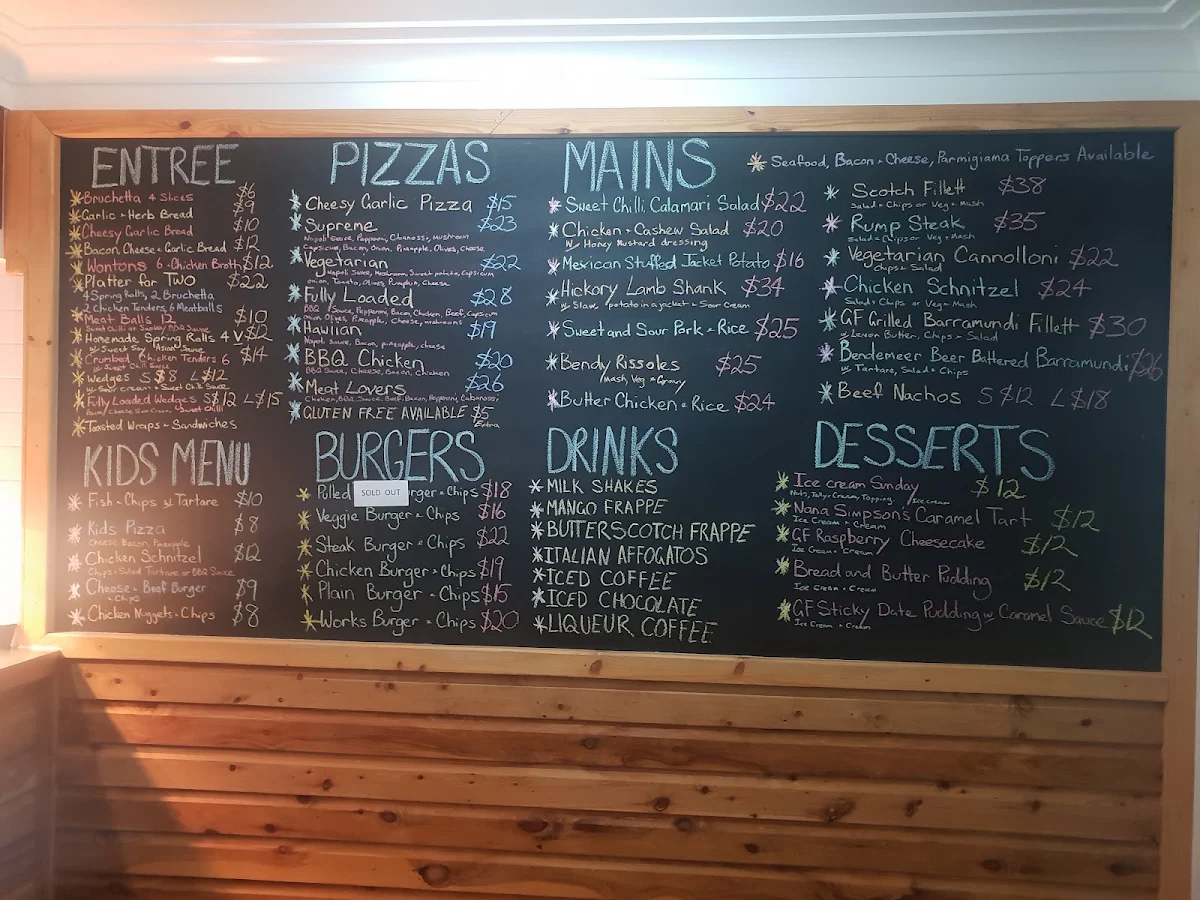 ENTREE
Bruchetta 4 Slices $6
Garlic + Herb Bread $9
Cheesy Garlic Bread $10
Bacon Cheese + Garlic Bread $12
Wontons 6 + Chicken Broth $12
Platter for TWO $22
4 Spring Rolls, 2 Bruchetta
2 Chicken Tenders, 6 Meatballs
Meat Balls 12 $10
Sweet Chilli or Smokey BBQ Sauce
Homemade Spring Rolls 4 V $12
w/ Sweet Asian Sauce
Crumbed Chicken Tenders 6 $14
w/ Sweet Chilli Sauce
Wedges S $8 L $12
w/ Sour cream + Sweet Chilli Sauce
Fully Loaded Wedges S $12 L $15
Toasted Wraps + Sandwiches
PIZZAS
Cheesy Garlic Pizza $15
Supreme $23
Napoli Sauce, Pepperoni, Cabanossi, Mushroom
Capsicum, Bacon, Onion, Pineapple, Olives, Cheese
Vegetarian $22
Napoli Sauce, Mushroom, Sweet potato, Capsicum
onion, Tomato, Olives, Pumpkin, Cheese
Fully Loaded $28
BBQ Sauce, Pepperoni, Bacon, Chicken, Beef, Capsicum
onion Olives, Pineapple, Cheese, mushrooms
Hawiian $19
Napoli sauce, Bacon, pineapple, cheese
BBQ Chicken $20
BBQ Sauce, Cheese, Bacon, Chicken
Meat Lovers $26
Chicken, BBQ Sauce, Beef, Bacon, Pepperoni, Cabanossi
GLUTEN FREE AVAILABLE $5
Extra
MAINS
Seafood, Bacon + Cheese, Parmigiama Toppers Available
Sweet Chilli Calamari Salad $22
Chicken + Cashew Salad $20
w/ Honey Mustard dressing
Mexican Stuffed Jacket Potato $16
Hickory Lamb Shank $34
w/ Slaw, potato in a jacket + Sour Cream
Sweet and Sour Pork + Rice $25
Bendy Rissoles $25
Mash, Veg + Gravy
Butter Chicken + Rice $24
Scotch Fillett $38
Salad + Chips or Veg + Mash
Rump Steak $35
Salad + Chips or Veg + Mash
Vegetarian Cannolloni $22
Chips + Salad
Chicken Schnitzel $24
Salad + Chips or Veg + Mash
GF Grilled Barramundi Fillett $30
w/ Lemon Butter, Chips + Salad
Bendemeer Beer Battered Barramundi $26
w/ Tartare, Salad + Chips
Beef Nachos S $12 L $18
KIDS MENU
Fish + Chips w Tartare $10
Kids Pizza $8
Cheese Bacon, Pineapple
Chicken Schnitzel $12
Chips + Salad Tartare or BBQ Sauce
Cheese + Beef Burger $9
+ Chips
Chicken Nuggets + Chips $8
BURGERS
Polled SOLD OUT rger + Chips $18
Veggie Burger + Chips $16
Steak Burger + Chips $22
Chicken Burger + Chips $19
Plain Burger + Chips $15
Works Burger + Chips $20
DRINKS
MILK SHAKES
MANGO FRAPPE
BUTTERSCOTCH FRAPPE
ITALIAN AFFOGATOS
ICED COFFEE
ICED CHOCOLATE
LIQUEUR COFFEE
DESSERTS
Ice cream Sunday $12
Nuts, Jelly, Cream, Topping, Ice cream
Nana Simpson's Caramel Tart $12
Ice Cream + cream
GF Raspberry Cheesecake $12
Ice Cream + Cream
Bread and Butter Pudding $12
Ice Cream + Cream
GF Sticky Date Pudding w Caramel Sauce $12
Ice Cream + Cream